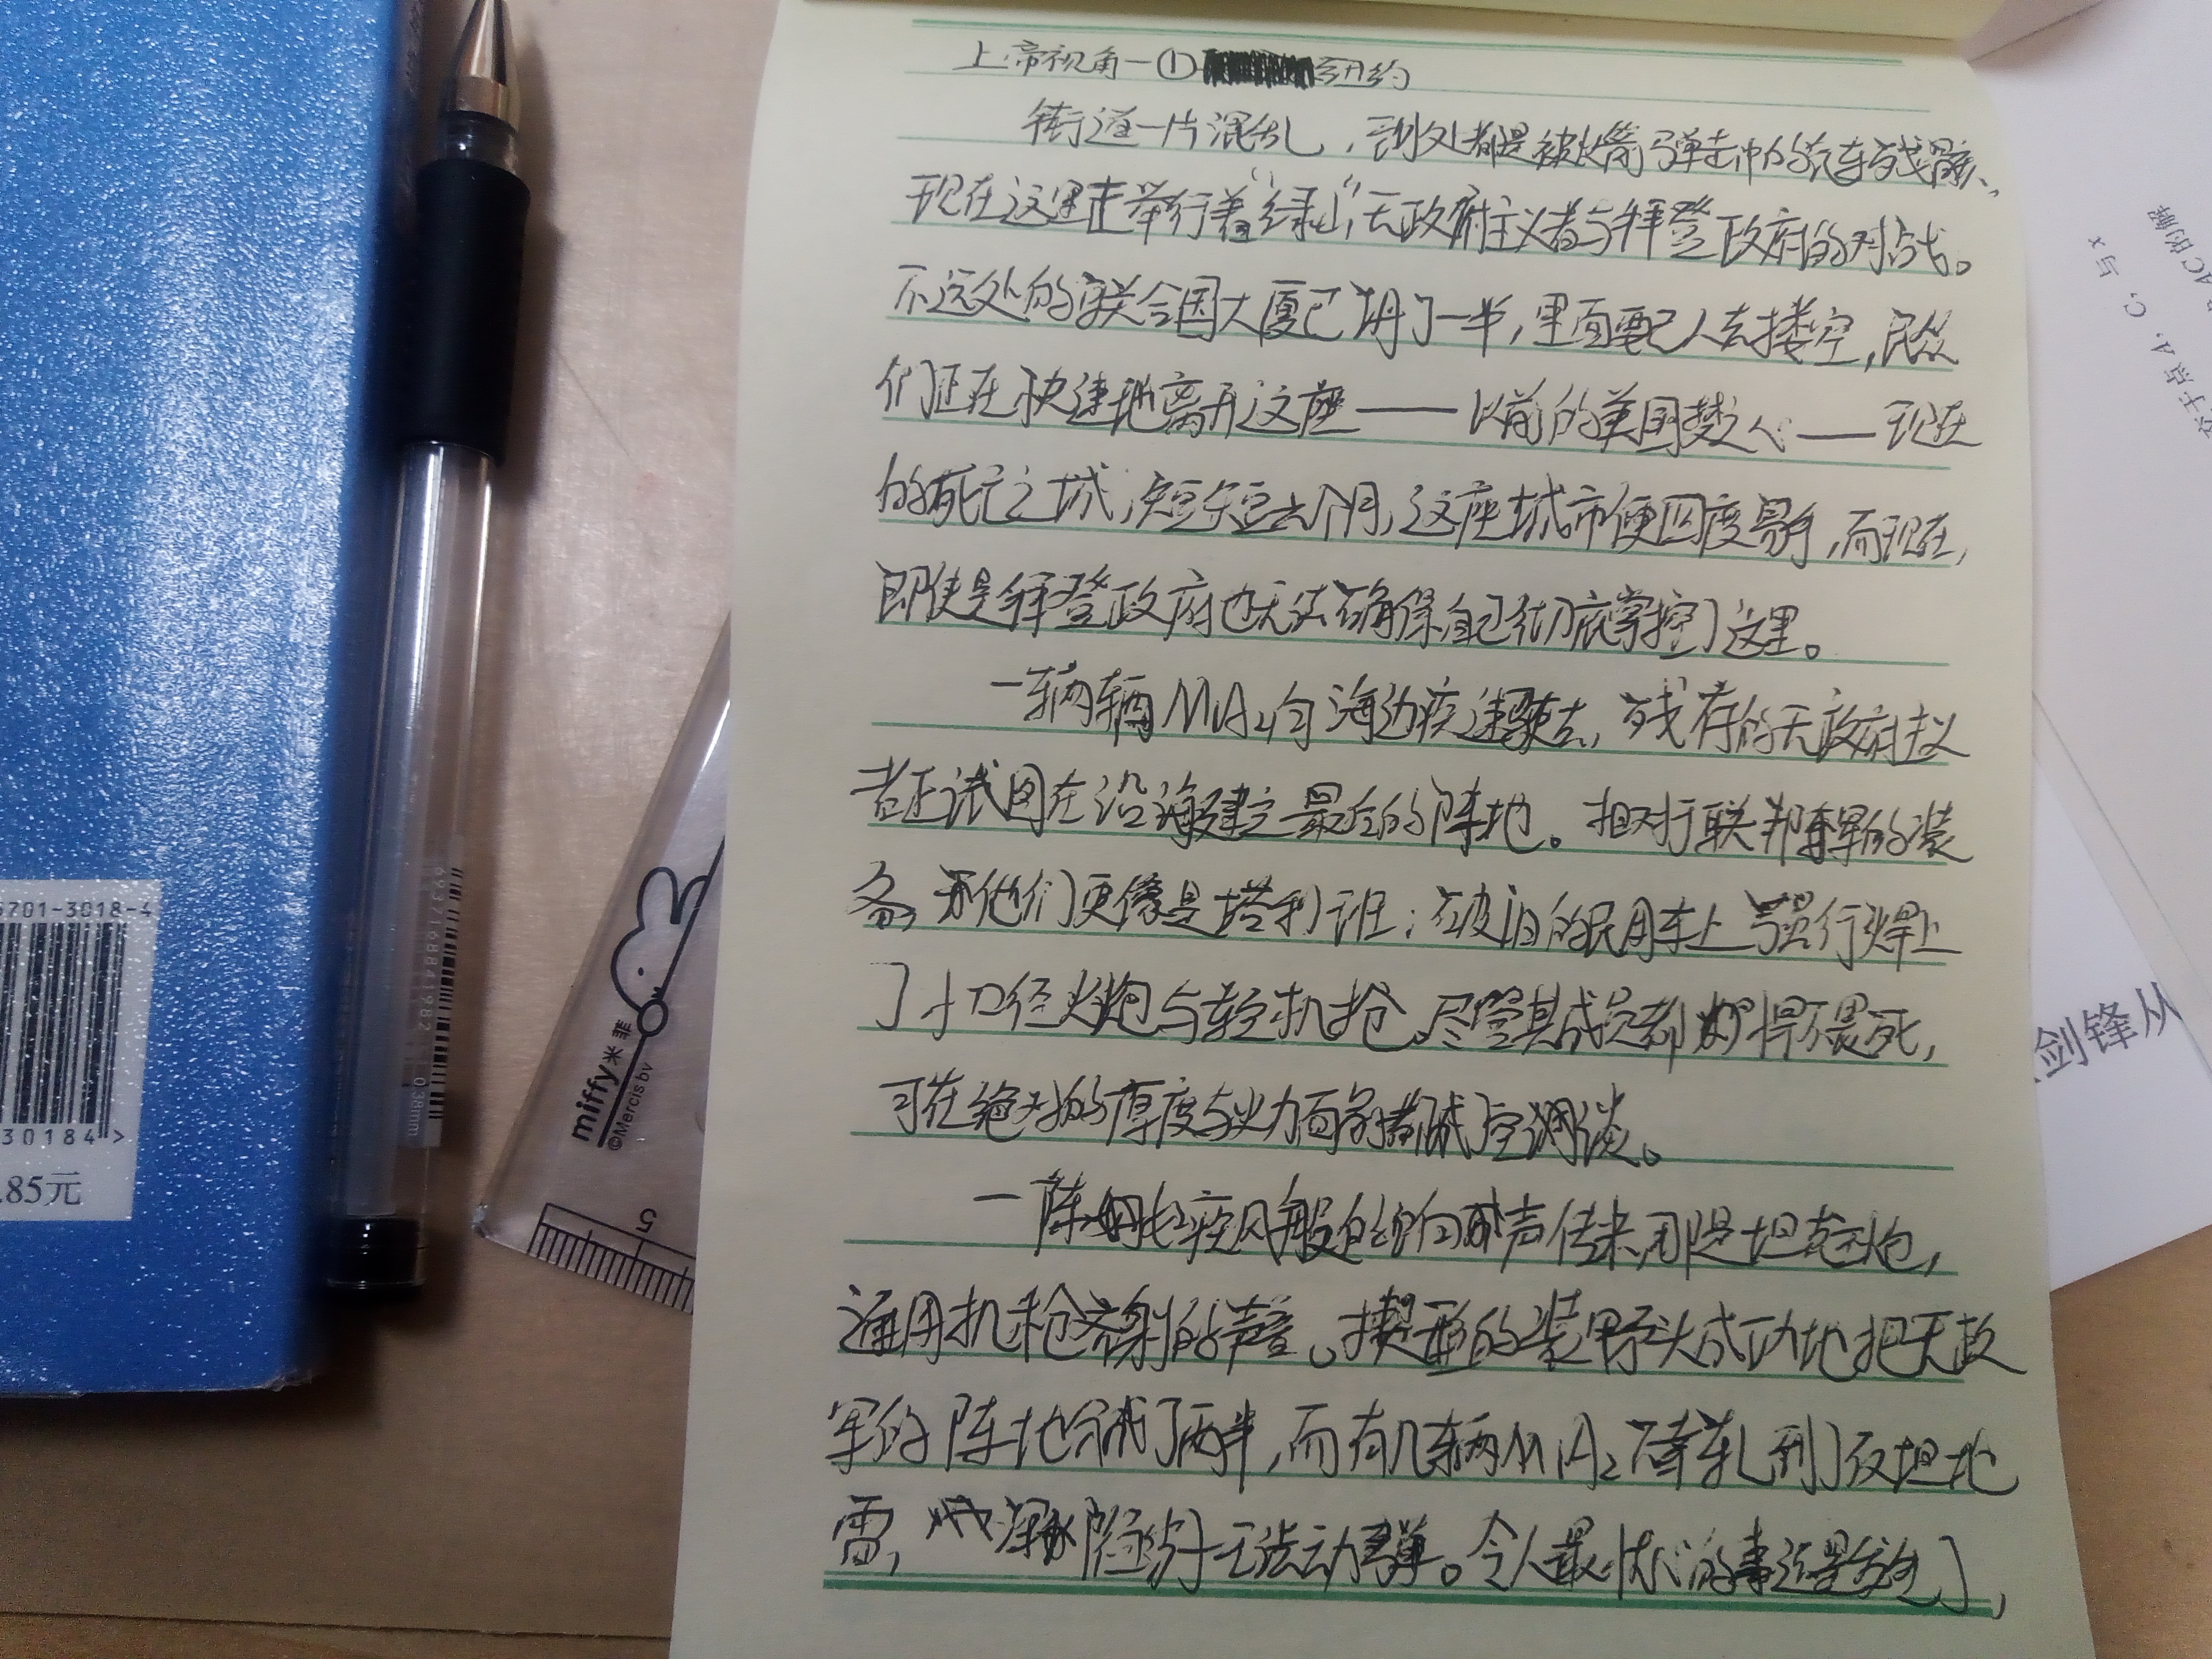 上帝视角一① 纽约
街道一片混乱，到处都是被火箭弹击中的汽车残骸、
现在这里正举行着“绿山”无政府主义者与拜登政府的对战。
不远处的联合国大厦已塌了一半，里面已人去楼空，民众
们正在快速地离开这座——以前的美国梦之心——现在
的死亡之城，短短六个月，这座城市便四度易手，而现在，
即使是拜登政府也无法确保自己彻底掌控了这里。
一辆辆M1A2向海边疾速驶去，残存的无政府主义
者正试图在沿海建立最后的阵地。相对于联邦军的装
备，他们更像是塔利班；在破旧的民用车上强行焊上
了小口径火炮与轻机枪，尽管其成员都彪悍不畏死，
可在绝对的厚度与火力面前都成了空谈。
一阵疾风般的响声传来，那是坦克炮，
通用机枪齐射的声音。楔形的装甲矛头成功地把无政
军的阵地分成了两半，而有几辆M1A2不幸轧到了反坦地
雷，履带断无法动弹。令人最担心的事还是发生了，
5701-3018-4
30184>
.85元
6937168841982
0.38mm
miffy米菲
©Mercis bv
5
剑锋从
点A，C，与x
AC的解